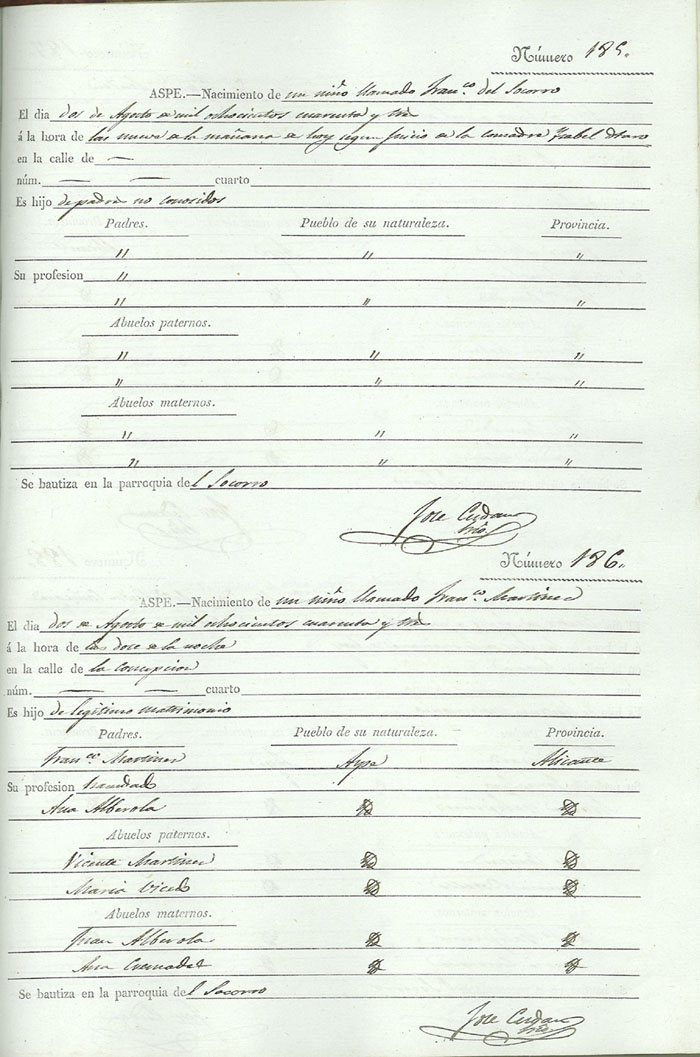 Número 185.
ASPE.—Nacimiento de un niño llamado Fran.co del Socorro
El dia dos de Agosto de mil ochocientos cuarenta y tres
á la hora de las nueve de la mañana de hoy segun juicio de la comadre Ysabel
en la calle de —
núm. — — cuarto
Es hijo de padres no conosidos
Padres. Pueblo de su naturaleza. Provincia.
" " "
Su profesion "
" " "
Abuelos paternos.
" " "
" " "
Abuelos maternos.
" " "
" " "
Se bautiza en la parroquia del Socorro
Jose
Número 186.
ASPE.—Nacimiento de un niño llamado Fran.co Martinez
El dia dos de Agosto de mil ochocientos cuarenta y tres
á la hora de las doce de la noche
en la calle de la concepcion
núm. — — cuarto
Es hijo de legitimo matrimonio
Padres. Pueblo de su naturaleza. Provincia.
Fran.co Martinez Aspe Alicante
Su profesion
Ana Alberola
Abuelos paternos.
Vicente Martinez
Maria Vicedo
Abuelos maternos.
Juan Alberola
Ana Cremades
Se bautiza en la parroquia del Socorro
Jose